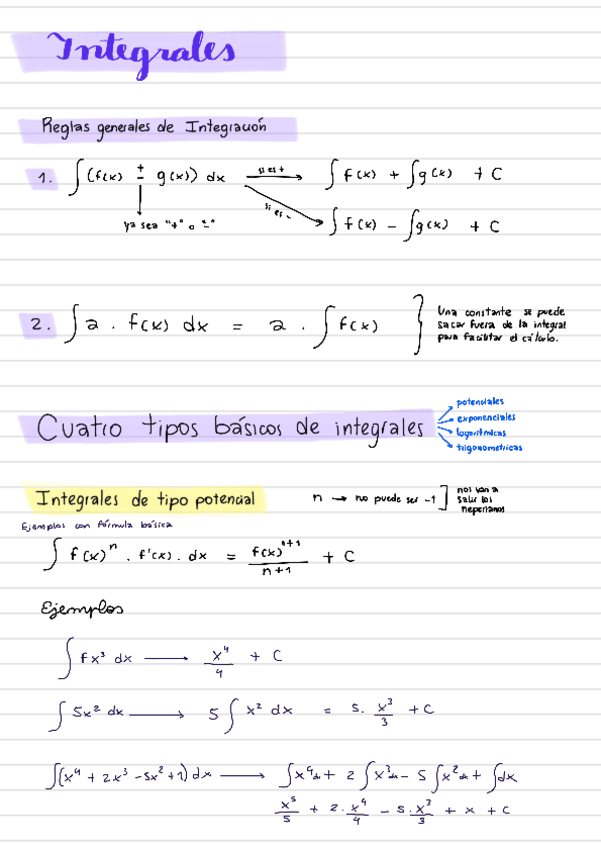 Integrales
Reglas generales de Integración
1. ∫(f(x) ± g(x)) dx si es + → ∫f(x) + ∫g(x) + C
ya sea "+" o "-" si es - → ∫f(x) - ∫g(x) + C
2. ∫a . f(x) dx = a . ∫f(x)
Una constante se puede
sacar fuera de la integral
para facilitar el cálculo.
Cuatro tipos básicos de integrales
potenciales
exponenciales
logarítmicas
trigonométricas
Integrales de tipo potencial
n → no puede ser -1]
nos van a
salir los
neperianos
Ejemplos con fórmula básica
∫f(x)ⁿ . f'(x) . dx = f(x)ⁿ⁺¹/n+1 + C
Ejemplos
∫fx³ dx → x⁴/4 + C
∫5x² dx → 5∫x² dx = 5. x³/3 + C
∫(x⁴ + 2x³ -5x² +1) dx → ∫x⁴dx + 2∫x³dx - 5∫x²dx + ∫dx
x⁵/5 + 2. x⁴/4 - 5. x³/3 + x + C